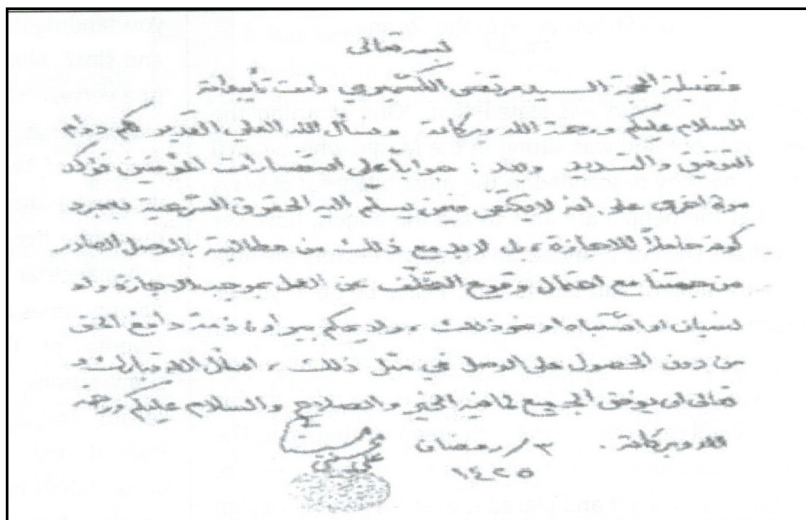 بسمه تعالى
فضيلة الحجة السيد مرتضى الكشميري دامت تأييداته
السلام عليكم ورحمة الله وبركاته ونسأل الله العلي القدير لكم دوام
التوفيق والتسديد وبعد : جواباً على استفسارات المؤمنين نؤكد
مرة اخرى على انه لا يكتفى فيمن يسلّم اليه الحقوق الشرعية بمجرد
كونه حاملاً للاجازة، بل لابد مع ذلك من مطالبته بالوصل الصادر
من جهتنا مع احتمال وقوع التخلّف عن العمل بموجب الاجازة ولو
لنسيان او اشتباه او نحو ذلك، ولا يحكم ببراءة ذمة دافع الحق
من دون الحصول على الوصل في مثل ذلك، اسأل الله تبارك و
تعالى ان يوفق الجميع لما فيه الخير والصلاح والسلام عليكم ورحمة
الله وبركاته . ٣/رمضان
١٤٢٥